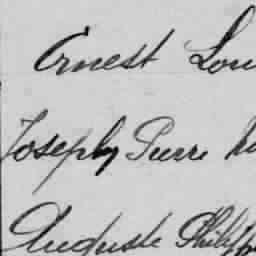 Ernest Lou
Joseph Pierre
Auguste Philipp